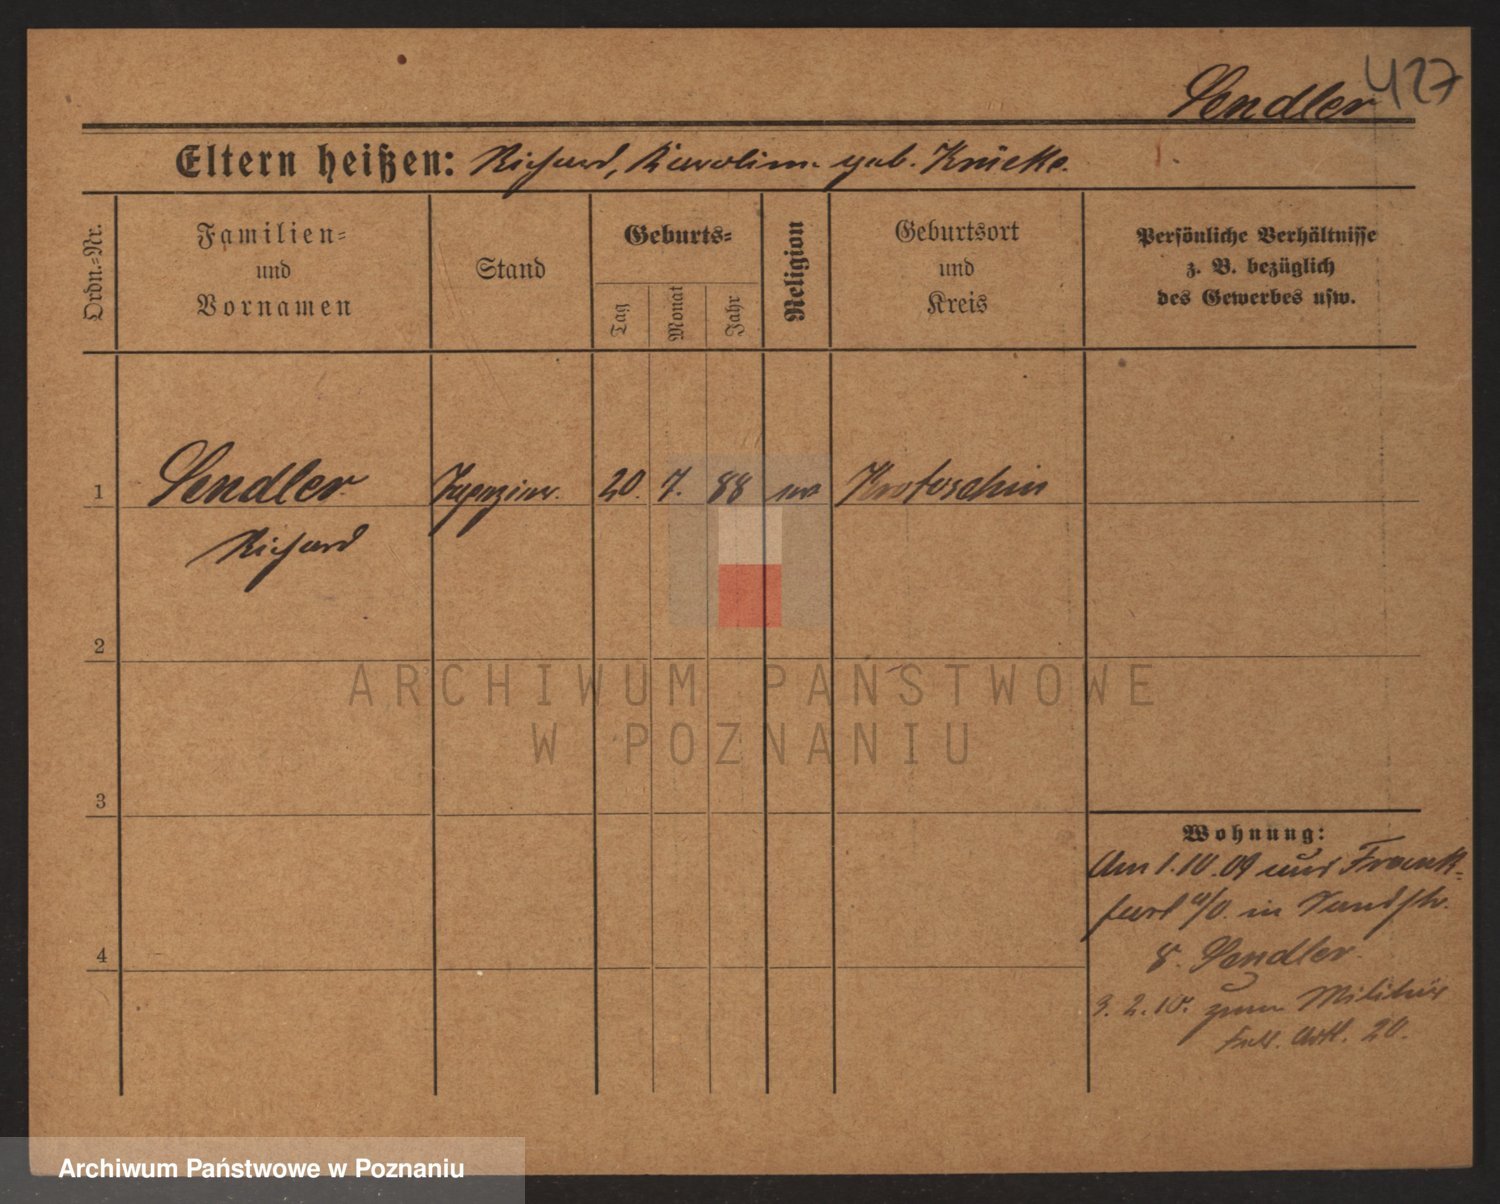 427
Sendler
Eltern heißen: Richard, Karolin. geb. Knicke.
Ordn.-Nr.
Familien-
und
Vornamen
Stand
Geburts-
Tag
Monat
Jahr
Religion
Geburtsort
und
Kreis
Persönliche Verhältnisse
z. B. bezüglich
des Gewerbes usw.
1
Sendler
Tapezier.
20. 7. 88
Krotoschin
Richard
2
ARCHIWUM PAŃSTWOWE
W POZNANIU
3
Wohnung:
Am 1.10.09 aus Frank-
furt a/O. in
8. Sendler.
4
3.2.10. zum Militär
Art. 20.
Archiwum Państwowe w Poznaniu